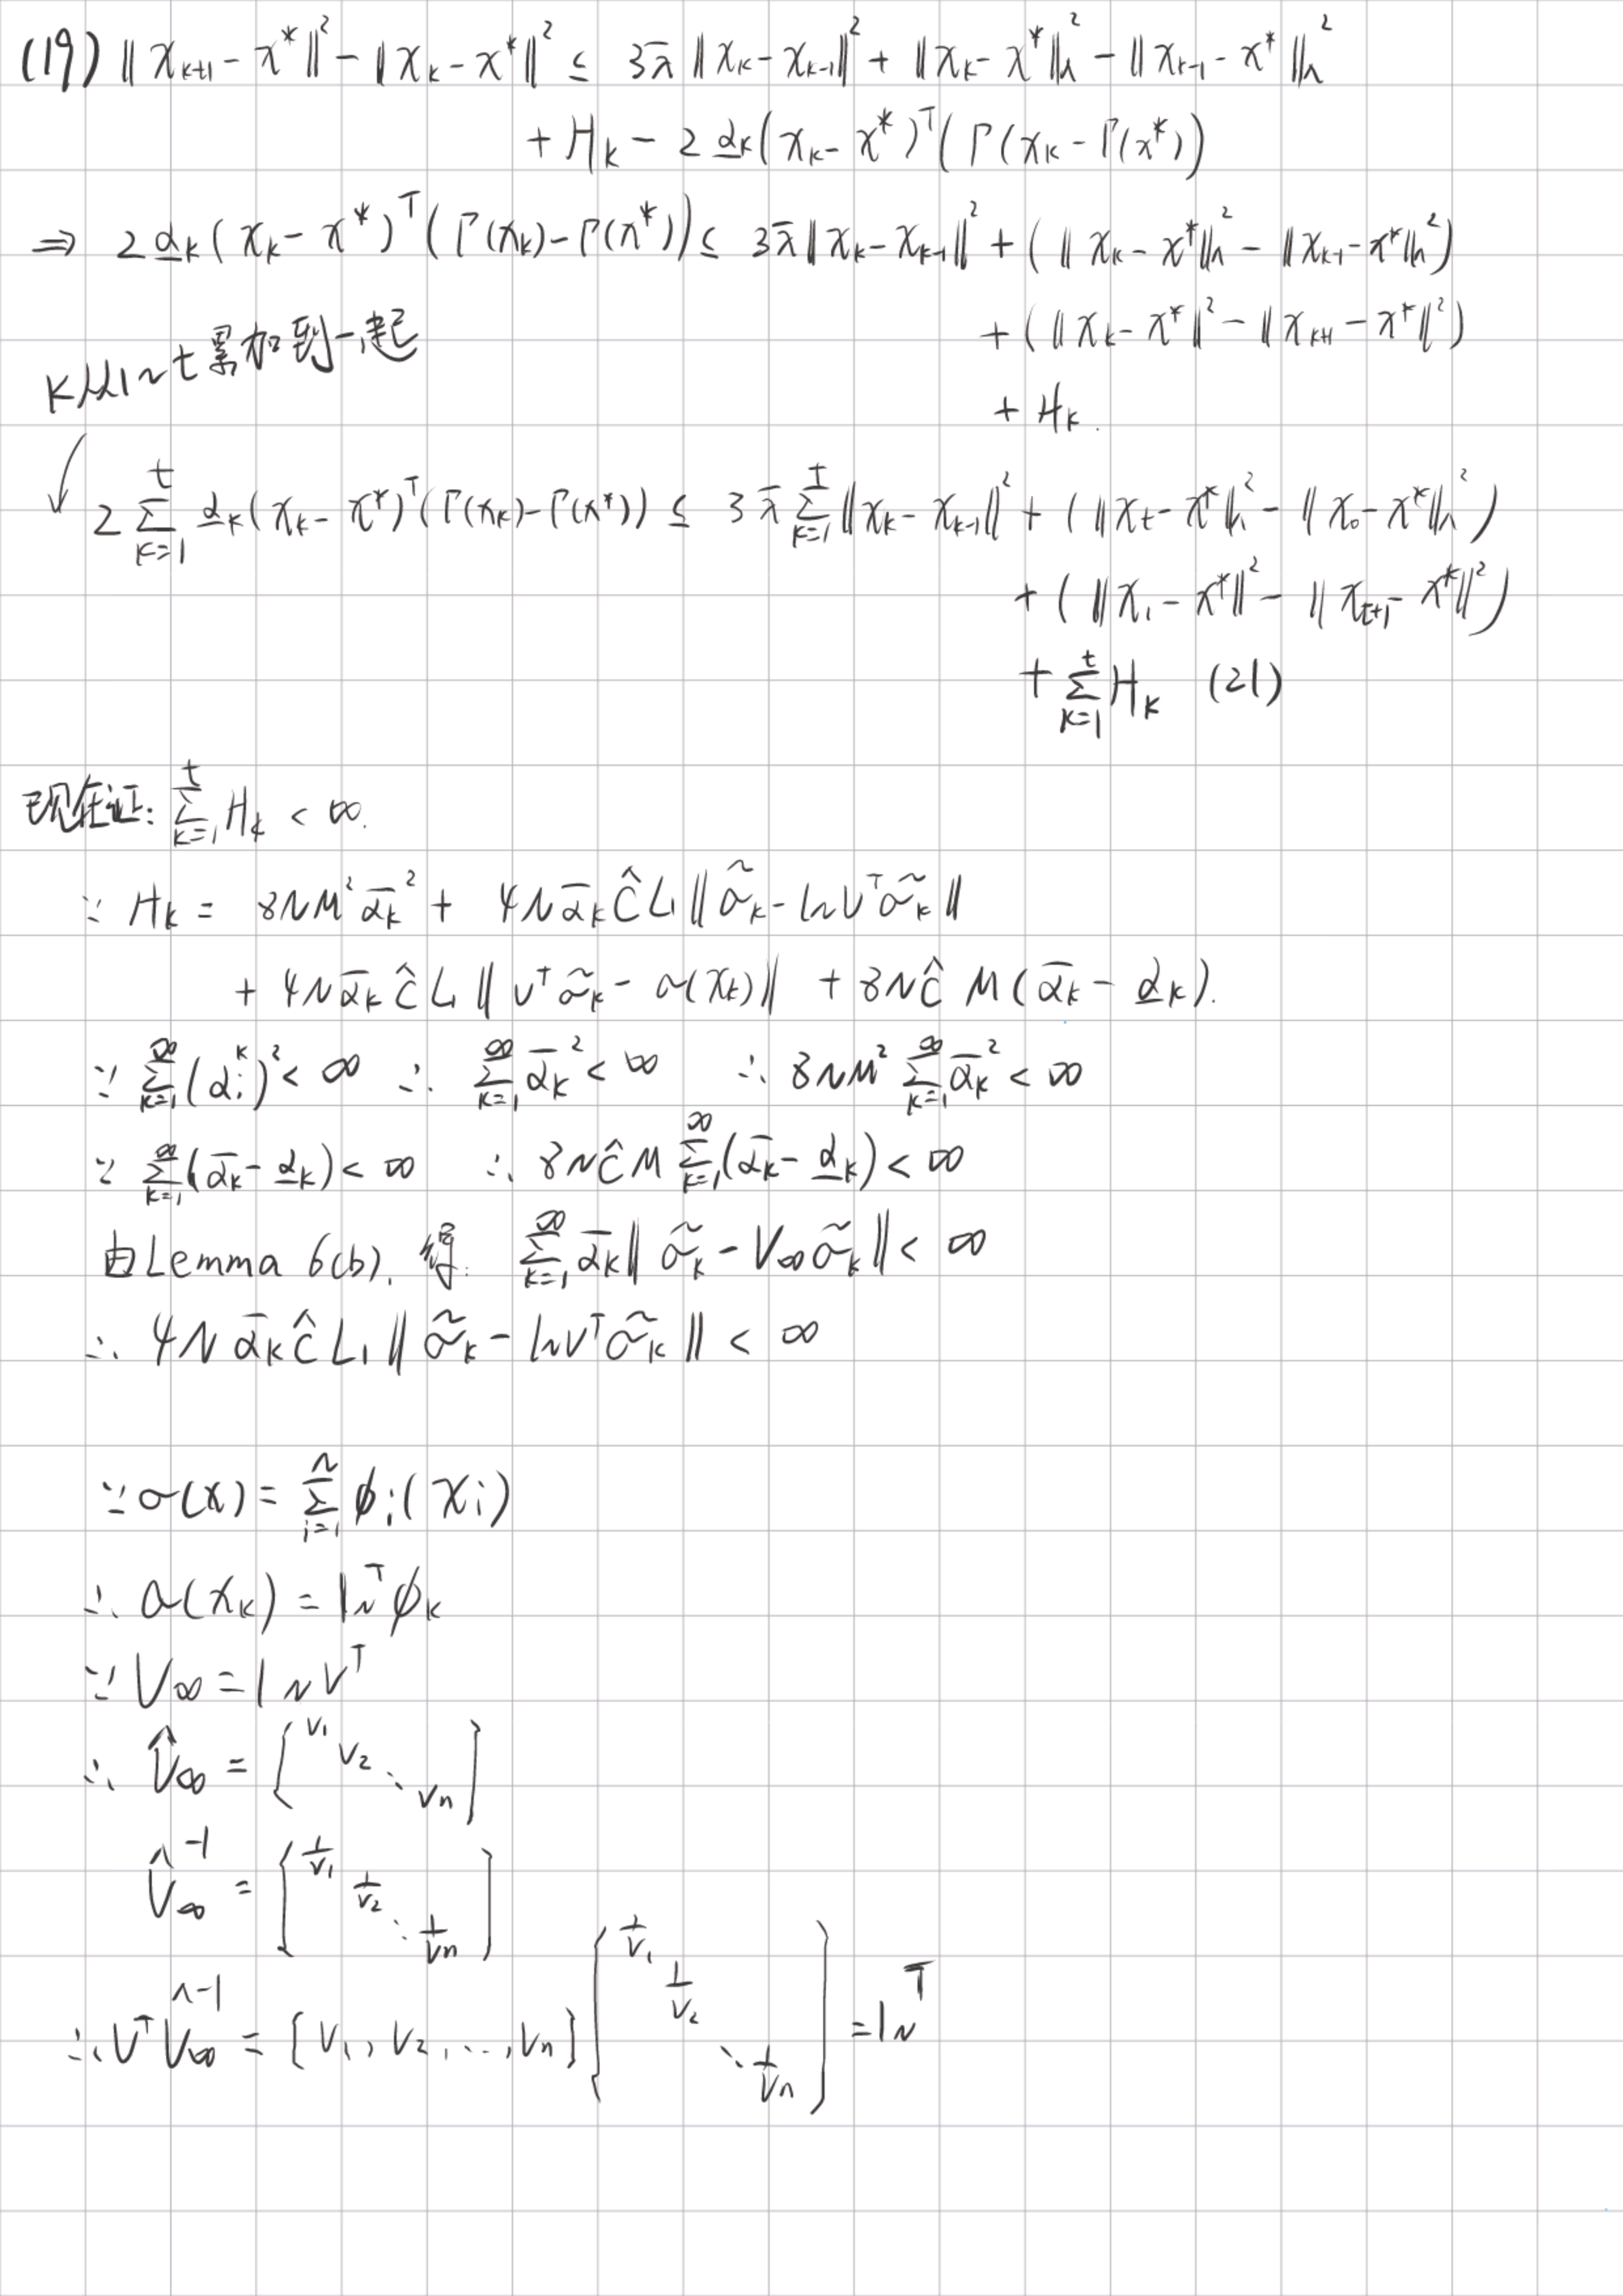 (19) ‖x_{k+1} - x^*‖² - ‖x_k - x^*‖² ≤ 3λ̄ ‖x_k - x_{k-1}‖² + ‖x_k - x^*‖_Λ² - ‖x_{k-1} - x^*‖_Λ²
+ H_k - 2 α̲_k (x_k - x^*)^T (Γ(x_k - Γ(x^*))
⇒ 2 α̲_k (x_k - x^*)^T (Γ(x_k) - Γ(x^*)) ≤ 3λ̄ ‖x_k - x_{k-1}‖² + (‖x_k - x^*‖_Λ² - ‖x_{k-1} - x^*‖_Λ²)
+ (‖x_k - x^*‖² - ‖x_{k+1} - x^*‖²)
k从1~t累加到一起
+ H_k.
↓ 2 ∑_{k=1}^{t} α̲_k (x_k - x^*)^T (Γ(x_k) - Γ(x^*)) ≤ 3 λ̄ ∑_{k=1}^{t} ‖x_k - x_{k-1}‖² + (‖x_t - x^*‖_Λ² - ‖x_0 - x^*‖_Λ²)
+ (‖x_1 - x^*‖² - ‖x_{t+1} - x^*‖²)
+ ∑_{k=1}^{t} H_k (21)
现在证: ∑_{k=1}^{t} H_k < ∞.
∵ H_k = 8NM² ᾱ_k² + 4N ᾱ_k Ĉ L_1 ‖σ̃_k - 1_N v^T σ̃_k‖
+ 4N ᾱ_k Ĉ L_1 ‖v^T σ̃_k - σ(x_k)‖ + 8NĈ M (ᾱ_k - α̲_k).
∵ ∑_{k=1}^{∞} (α_i^k)² < ∞ ∴ ∑_{k=1}^{∞} ᾱ_k² < ∞ ∴ 8NM² ∑_{k=1}^{∞} ᾱ_k² < ∞
∵ ∑_{k=1}^{∞} (ᾱ_k - α̲_k) < ∞ ∴ 8NĈM ∑_{k=1}^{∞} (ᾱ_k - α̲_k) < ∞
由Lemma 6(b), 得: ∑_{k=1}^{∞} ᾱ_k ‖σ̃_k - V_∞ σ̃_k‖ < ∞
∴ 4N ᾱ_k Ĉ L_1 ‖σ̃_k - 1_N v^T σ̃_k‖ < ∞
∵ σ(x) = ∑_{i=1}^{N} φ_i(x_i)
∴ σ(x_k) = 1_N^T φ_k
∵ V_∞ = 1_N v^T
∴ V̂_∞ = [v_1 v_2 ⋱ v_n]
V̂_∞^{-1} = [1/v_1 1/v_2 ⋱ 1/v_n]
∴ v^T V̂_∞^{-1} = [v_1, v_2, ..., v_n] [1/v_1 1/v_2 ⋱ 1/v_n] = 1_N^T